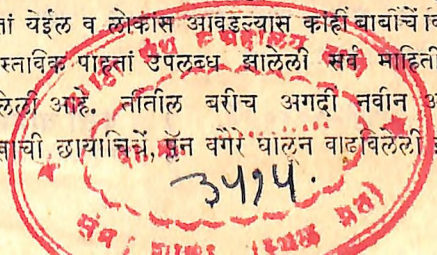 तां येईल व लोकांस आवडल्यास कांहीं बाबींचें वि
स्ताविक पाहतां उपलब्ध झालेली सर्व माहिती
लेली आहे. तींतील बरीच अगदीं नवीन अ
ाची छायाचित्रें, प्लॅन वगैरे घालून वाढविलेली
३५१५.